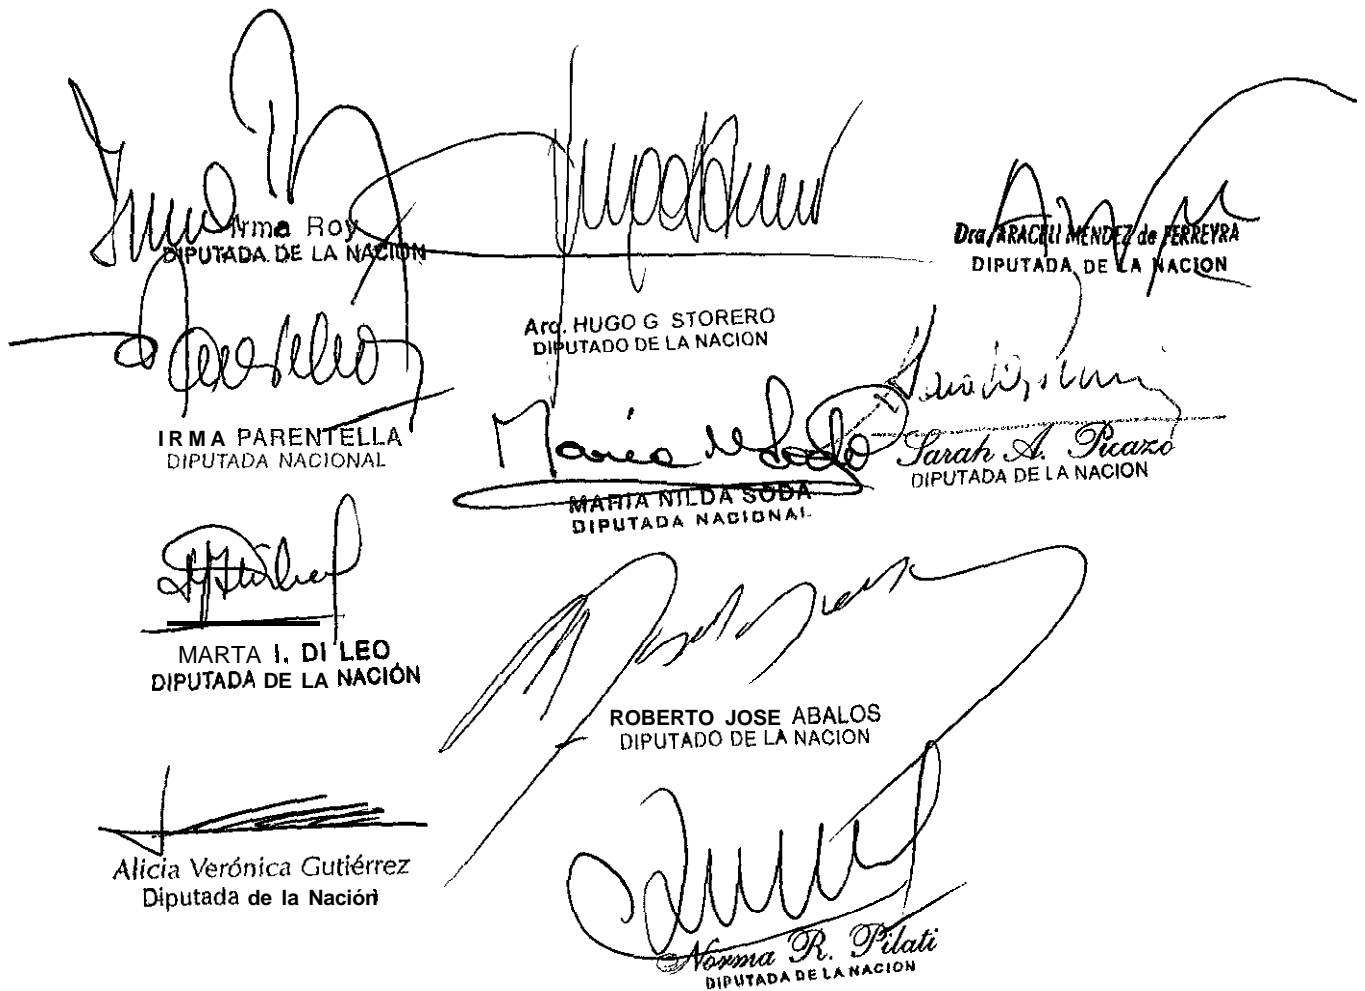 Irma Roy
DIPUTADA DE LA NACIÓN
Dra. ARACELI MENDEZ de FERREYRA
DIPUTADA DE LA NACION
Arq. HUGO G STORERO
DIPUTADO DE LA NACION
IRMA PARENTELLA
DIPUTADA NACIONAL
María N Soda
MARIA NILDA SODA
DIPUTADA NACIONAL
Sarah A. Picazo
DIPUTADA DE LA NACION
MARTA I. DI LEO
DIPUTADA DE LA NACIÓN
ROBERTO JOSE ABALOS
DIPUTADO DE LA NACION
Alicia Verónica Gutiérrez
Diputada de la Nación
Norma R. Pilati
DIPUTADA DE LA NACION